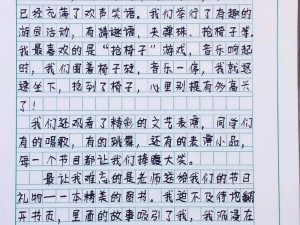 已经充满了欢声笑语。我们举行了有趣的
游园活动,有猜谜语、夹弹珠、抢椅子等。
我最喜欢的是“抢椅子”游戏,音乐响起
时,我们围着椅子跑,音乐一停,我就迅
速坐下,抢到了椅子,心里别提有多高兴
了!
我们还观看了精彩的文艺表演,同学们
有的唱歌,有的跳舞,还有的表演小品,
每一个节目都让我们捧腹大笑。
最让我难忘的是老师送给我们的节日
礼物——一本精美的图书。我迫不及待地翻
开书页,里面的故事吸引了我,我沉浸在